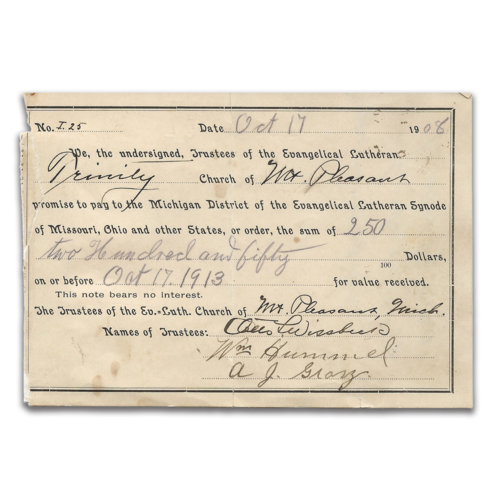 No. I. 25 Date Oct 17 1908
We, the undersigned, Trustees of the Evangelical Lutheran
Trinity Church of Mt. Pleasant
promise to pay to the Michigan District of the Evangelical Lutheran Synode
of Missouri, Ohio and other States, or order, the sum of 250
two Hundred and fifty 100 Dollars,
on or before Oct 17. 1913 for value received.
This note bears no interest.
The Trustees of the Ev.-Luth. Church of Mt. Pleasant, Mich.
Names of Trustees:
Wm Hummel
A. J.